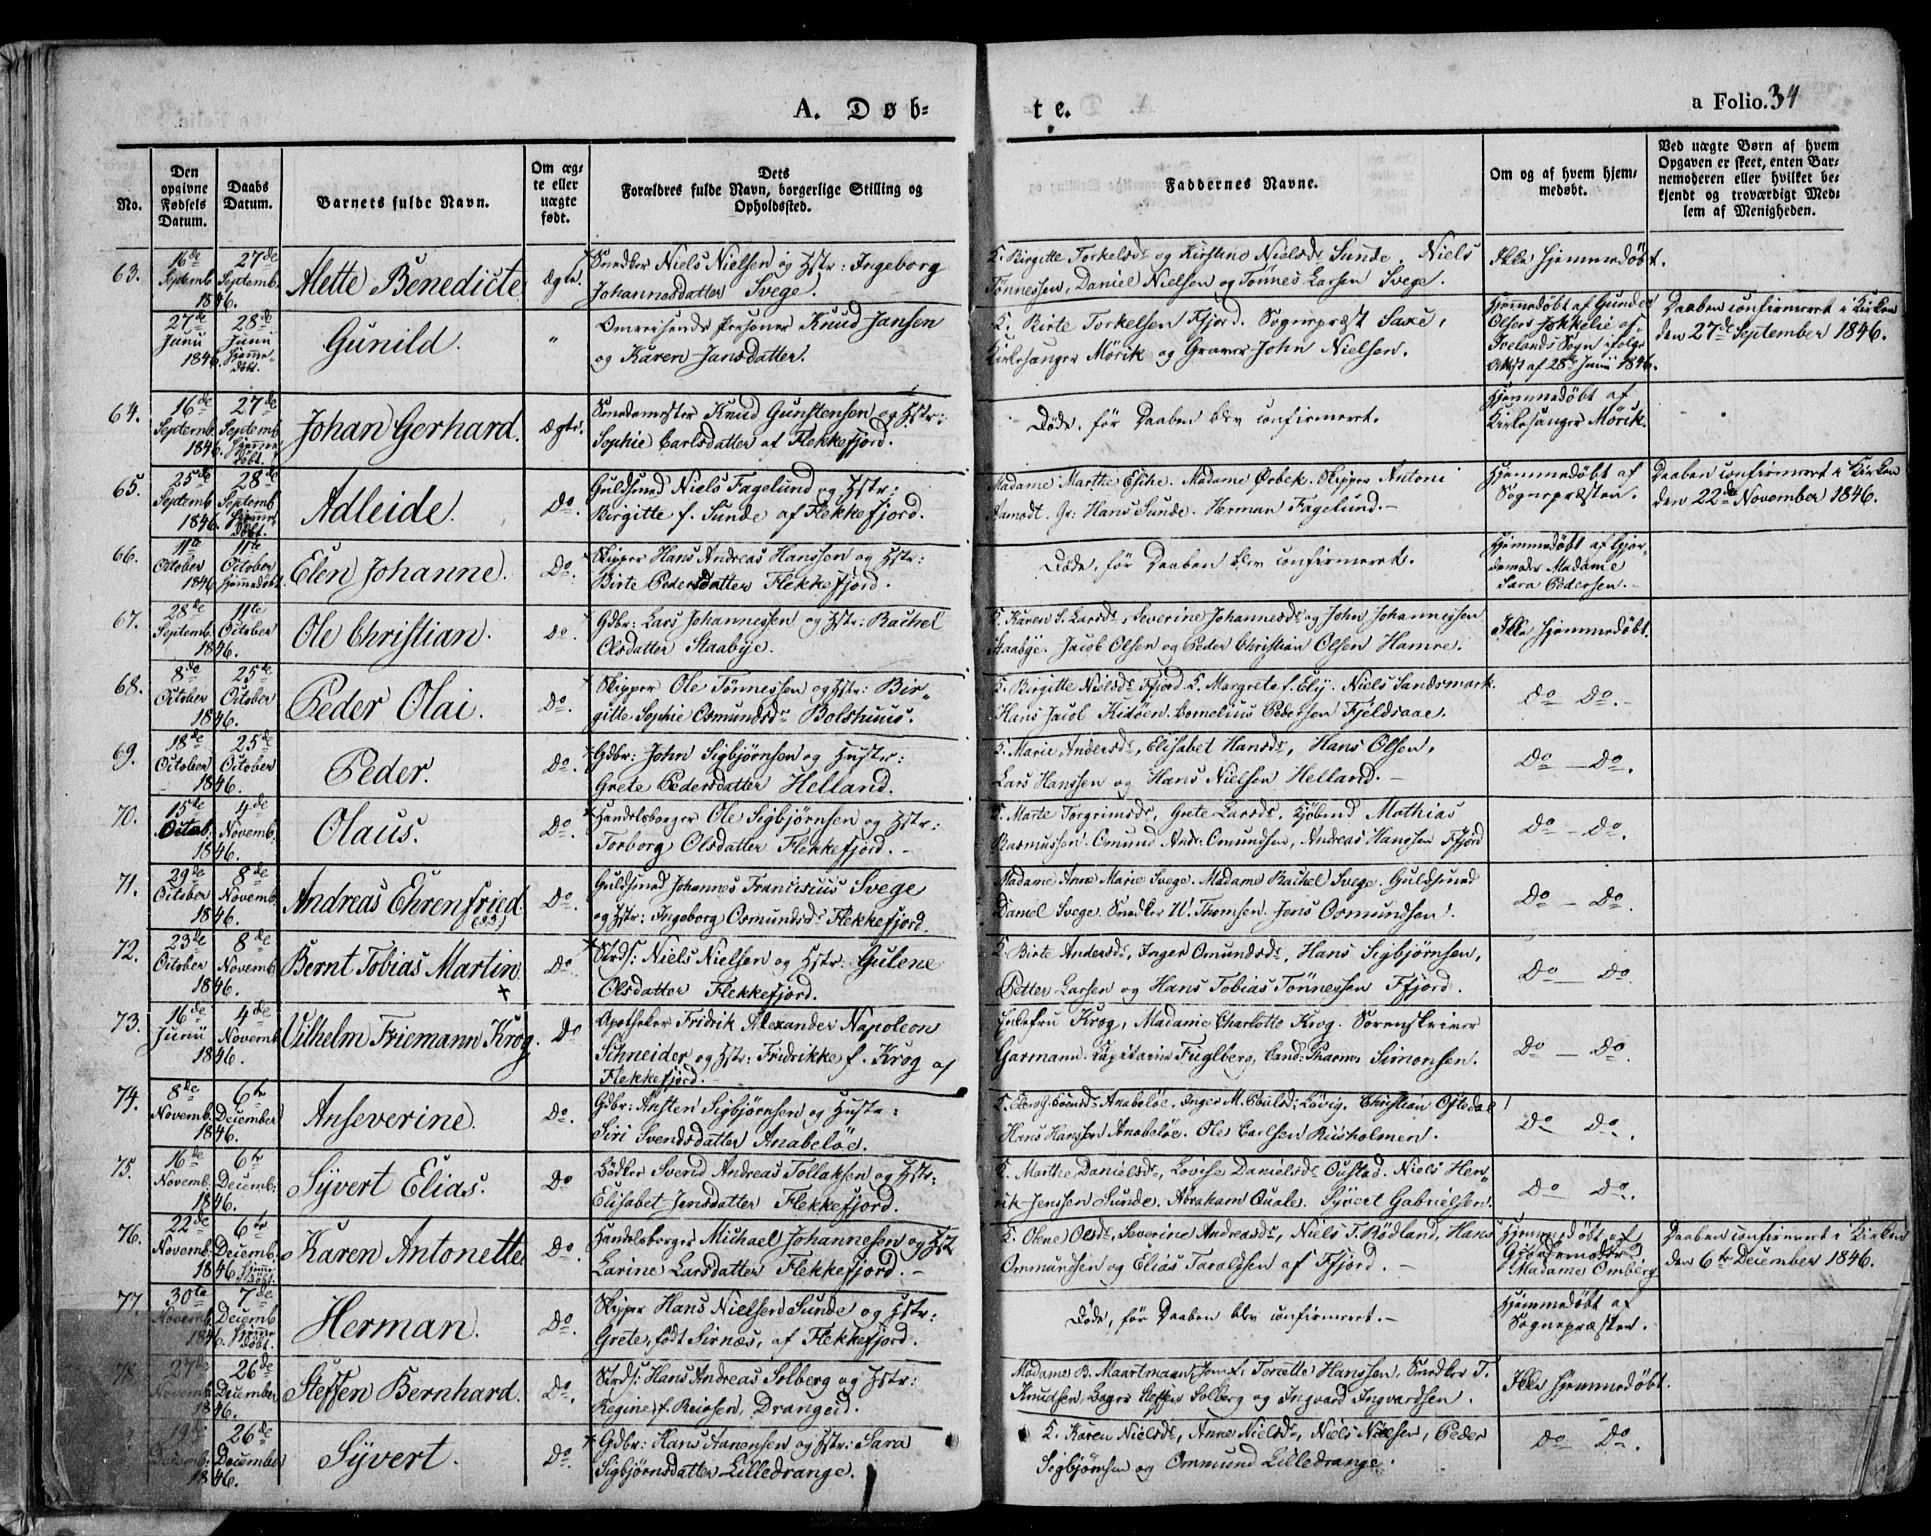 A. Døb=
te.
a Folio. 34
No.
Den opgivne Fødsels Datum.
Daabs Datum.
Barnets fulde Navn.
Om ægte eller uægte født.
Dets Forældres fulde Navn, borgerlige Stilling og Opholdssted.
Faddernes Navne.
Om og af hvem hjemmedøbt.
Ved uægte Børn af hvem Opgaven er skeet, enten Barnemoderen eller hvilket bekjendt og troværdigt Medlem af Menigheden.
63. 16de Septemb. 1846. 27de Septemb. Alette Benedicte ægte.
Snedker Niels Nielsen og Hstr: Ingeborg
Johannesdatter Svege.
K. Birgitte Torkelsd. og Kirstine Nielsd. Sunde. Niels
Tønnessen, Daniel Nielsen og Tønnes Larsen Svege.
Ikke hjemmedøbt.
27de Junii 1846. 28de Junii Hjemmedøbt. Gunild. "
Omreisende Personer Knud Jansen
og Karen Jansdatter.
K. Birte Torkelsen Fjord. Sognepræst Saxe,
Kirkesanger Mörik og Graver John Nielsen.
Hjemmedøbt af Gunder
Olsen Jokkelie af
Ivelands Sogn ifølge
Attest af 28de Junii 1846.
Daaben confirmeret i Kirken
den 27de September 1846.
64. 16de Septemb. 1846. 27de Septemb. Hjemmedøbt. Johan Gerhard. ægte.
Smedemester Knud Gunstensen og Hstr:
Sophie Carlsdatter af Flekkefjord.
Døde, før Daaben blev confirmeret.
Hjemmedøbt af
Kirkesanger Mörik.
65. 25de Septemb. 1846. 28de Septemb. Hjemmedøbt. Adleide. Do.
Guldsmed Niels Fagelund og Hstr:
Birgitte f. Sunde af Flekkefjord.
Madame Marthe Esche. Madame Ørbek. Skipper Antoni
Aamodt. Gr: Hans Sunde. Herman Fagelund.
Hjemmedøbt af
Sognepræsten.
Daaben confirmeret i Kirken
den 22de November 1846.
66. 11te October 1846. 11te October Hjemmedøbt. Elen Johanne. Do.
Skipper Hans Andreas Hanssen og Hstr:
Birte Pedersdatter Flekkefjord.
Døde, før Daaben blev confirmeret.
Hjemmedøbt af Gjor,
demoder Madame
Sara Pedersen.
67. 28de Septemb. 1846. 11te October Ole Christian. Do.
Gdbr: Lars Johannessen og Hstr: Rachel
Olsdatter Staabye.
K. Karen S. Larsd., Severine Johannesd. og John Johannessen
Staabye. Jacob Olsen og Peder Christian Olsen Hamre.
Ikke hjemmedøbt.
68. 8de October 1846. 25de October Peder Olai. Do.
Skipper Ole Tönnessen og Hstr: Bir-
gitte Sophie Osmundsdr Bolshuus.
K. Birgitte Nielsd. Fjord K. Margrete f. Elÿ. Niels Sandsmark.
Hans Jacob Kidöen. Cornelius Pedersen Fjeldsaae.
Do Do.
69. 18de October 1846. 25de October Peder. Do.
Gdbr: John Sigbjørnsen og Hustr:
Grete Pedersdatter Helland.
K. Marie Andersd., Elisabet Hansd., Hans Olsen,
Lars Hanssen og Hans Nielsen Helland.
Do Do.
70. 15de Octob. 1846. 4de Novemb. Olaus. Do.
Handelsborger Ole Sigbjørnsen og Hstr:
Torborg Olsdatter Flekkefjord.
K. Marte Torgrimsd., Grete Larsd. Kjøbmd Mathias
Rasmussen. Omund Andr. Omundsen, Andreas Hanssen Ffjord
Do Do.
71. 29de October 1846. 8de Novemb. Andreas Ehrenfried. Do.
Guldsmed Johannes Franciscus Svege
og Hstr: Ingeborg Osmundsd. Flekkefjord.
Madame Anne Marie Svege. Madame Rachel Svege. Guldsmed
Daniel Svege. Snedker W. Thomsen. Jens Osmundsen.
Do Do.
72. 23de October 1846. 8de Novemb. Bernt Tobias Martin Do.
Niels Nielsen og Hstr: Gulene
Olsdatter Flekkefjord.
K. Birte Andersd., Inger Omundsd., Hans Sigbjørnsen,
Petter Larsen og Hans Tobias Tönnessen Ffjord.
Do Do
73. 16de Junii 1846. 4de Novemb. Vilhelm Friemann Krog. Do
Apotheker Fridrik Alexander Napoleon
Schneider og Hstr: Fridrikke f. Krog af
Flekkefjord.
Krog, Madame Charlotte Krog. Sorenskriver
Garmann. Capitaine Fuglberg, Cand: Pharm: Simonsen.
Do Do.
74. 8de Novemb. 1846. 6te December Anseverine. Do.
Gdbr: Austen Sigbjørnsen og Hustr:
Siri Svendsdatter Anabeløe.
Anabeløe. Inger M. Løvig. Christian Oftedal
Hans Hansen Anabeløe. Ole Carlsen Risholmen.
Do Do.
75. 16de Novemb. 1846. 6te Decemb. Syvert Elias. Do
Bödker Svend Andreas Tollaksen og Hstr:
Elisabet Jensdatter Flekkefjord.
K. Marthe Danielsd., Lovise Danielsd. Oustad. Niels Hen-
rik Jenssen Sunde. Abraham Quale. Syvert Gabrielsen.
Do Do.
76. 22de Novemb. 1846. 6te Decemb. Hjemmedøbt. Karen Antonette Do.
Handelsborger Michael Johannesen og Hst.
Larine Larsdatter Flekkefjord.
K. Olene Olsd., Severine Andreasd., Niels T. Rödland, Hans
Ommundsen og Elias Taraldsen af Ffjord.
Hjemmedøbt af
Gjordemoder
Madame Omberg
Daaben confirmeret i Kirken
den 6te December 1846.
77 30te Novemb. 1846. 7de Decemb. Hjemmedøbt. Herman. Do.
Skipper Hans Nielsen Sunde og Hstr:
Grete, født Sirnæs, af Flekkefjord.
Døde, før Daaben blev confirmeret.
Hjemmedøbt af
Sognepræsten.
78 27de Novemb. 1846. 26de December Steffen Bernhard. Do.
Hans Andreas Solberg og Hstr:
Regine f. Reiersen, Drangeid.
Madame B. Maartmann, Jomf. Torcette Hanssen, Snedker T.
Knudsen, Bager Steffen Solberg og Ingvard Ingvardsen.
Ikke hjemmedøbt.
19de Decemb. 1846. 26de December Syvert. Do.
Gdbr: Hans Aanensen og Hstr: Sara
Sigbjørnsdatter Lilledrange.
K. Karen Nielsd., Anne Nielsd., Niels Nielsen, Peder
Sigbjørnsen og Ommund Lilledrange.
Do Do.